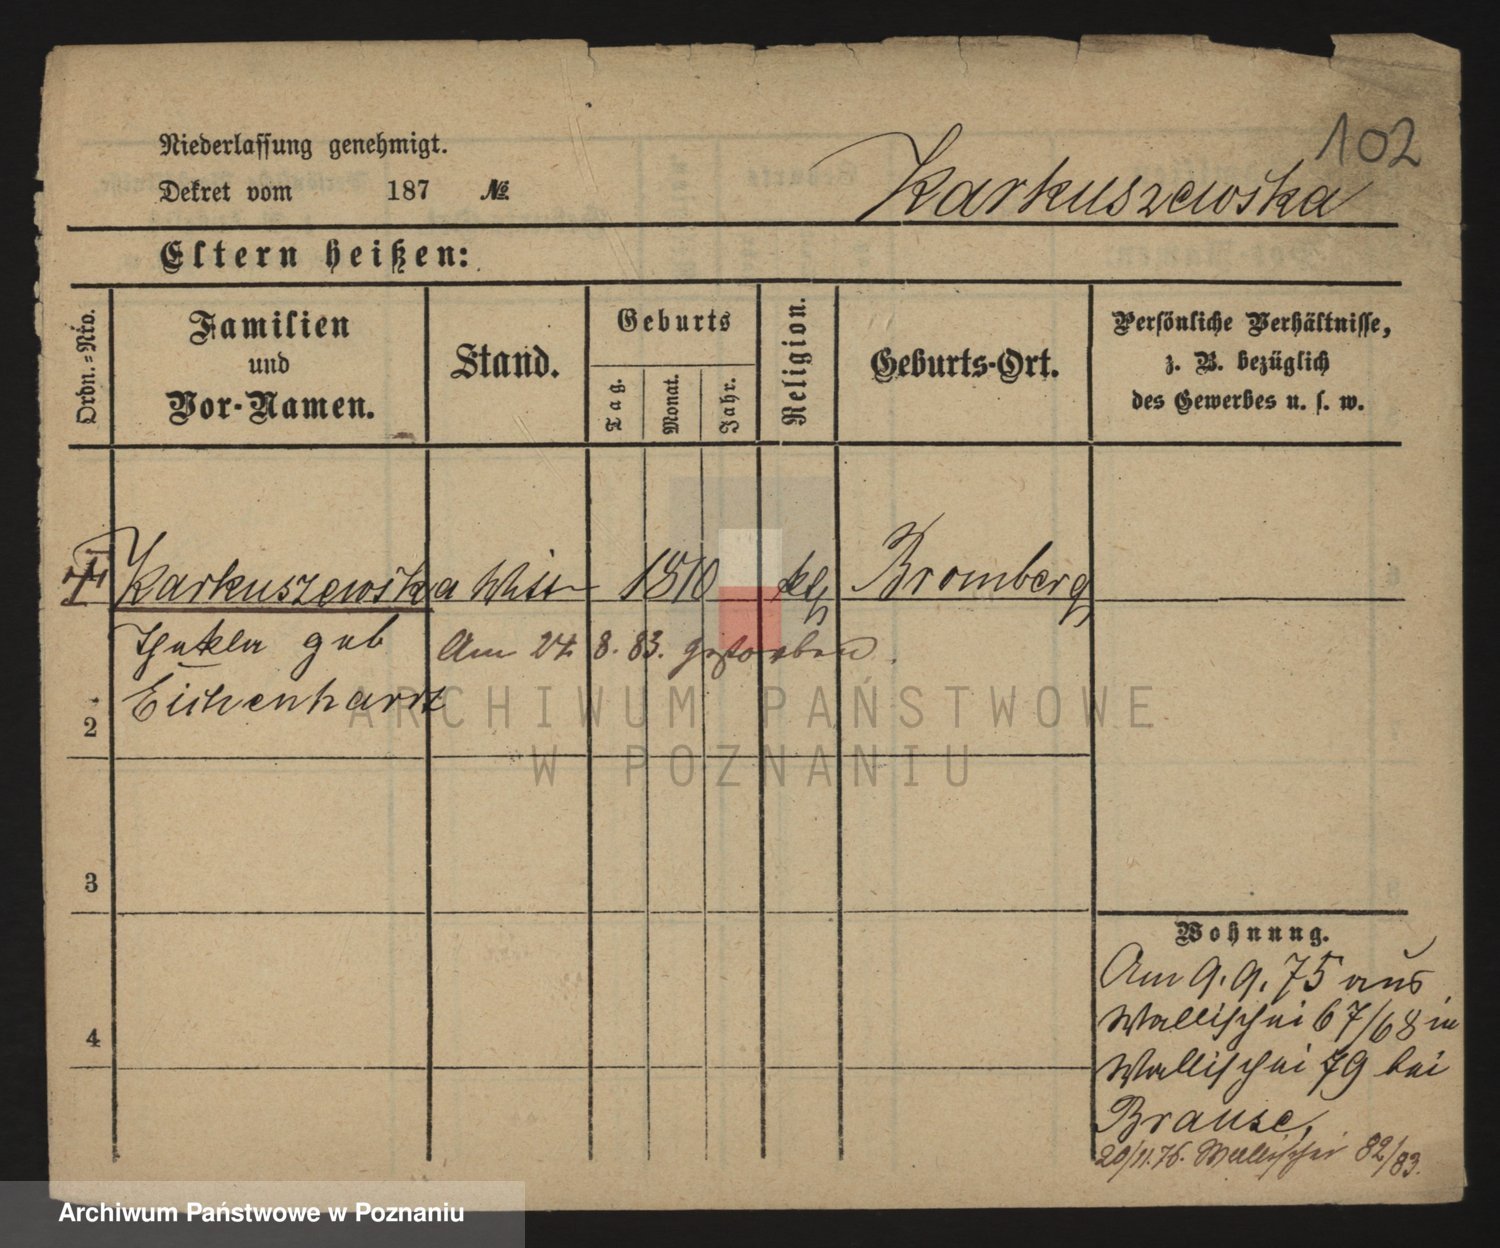 102
Niederlassung genehmigt.
Dekret vom 187 №
Karkuszewska
Eltern heißen:
Ordn.=Nro.
Familien
und
Vor-Namen.
Stand.
Geburts
Tag.
Monat.
Jahr.
Religion.
Geburts-Ort.
Persönliche Verhältnisse,
z. B. bezüglich
des Gewerbes u. s. w.
Karkuszewska 1810 Bromberg
Thekla geb
Am 24. 8. 83. gestorben.
Eichenhardt
2
3
4
Wohnung.
Am 9. 9. 75 aus
Wallischei 67/68 in
Wallischei 79 bei
Brause,
20/11.76. Wallischei 82/83.
ARCHIWUM PAŃSTWOWE
W POZNANIU
Archiwum Państwowe w Poznaniu